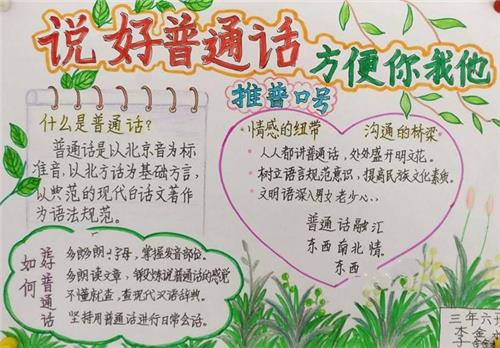 说好普通话
方便你我他
推普口号
什么是普通话?
普通话是以北京音为标
准音,以北方话为基础方言,
以典范的现代白话文著作
为语法规范。
情感的纽带 沟通的桥梁
人人都讲普通话,处处盛开明文花。
树立语言规范意识,提高民族文化素质。
文明语深入男女老少心、
普通话融汇
东西南北情。
东西
如何
说好普通话
多朗朗 字母,掌握发音部位。
多朗读文章,锻炼说普通话的感觉
不懂就查,查现代汉语辞典。
坚持用普通话进行日常会话。
三年六班
李金